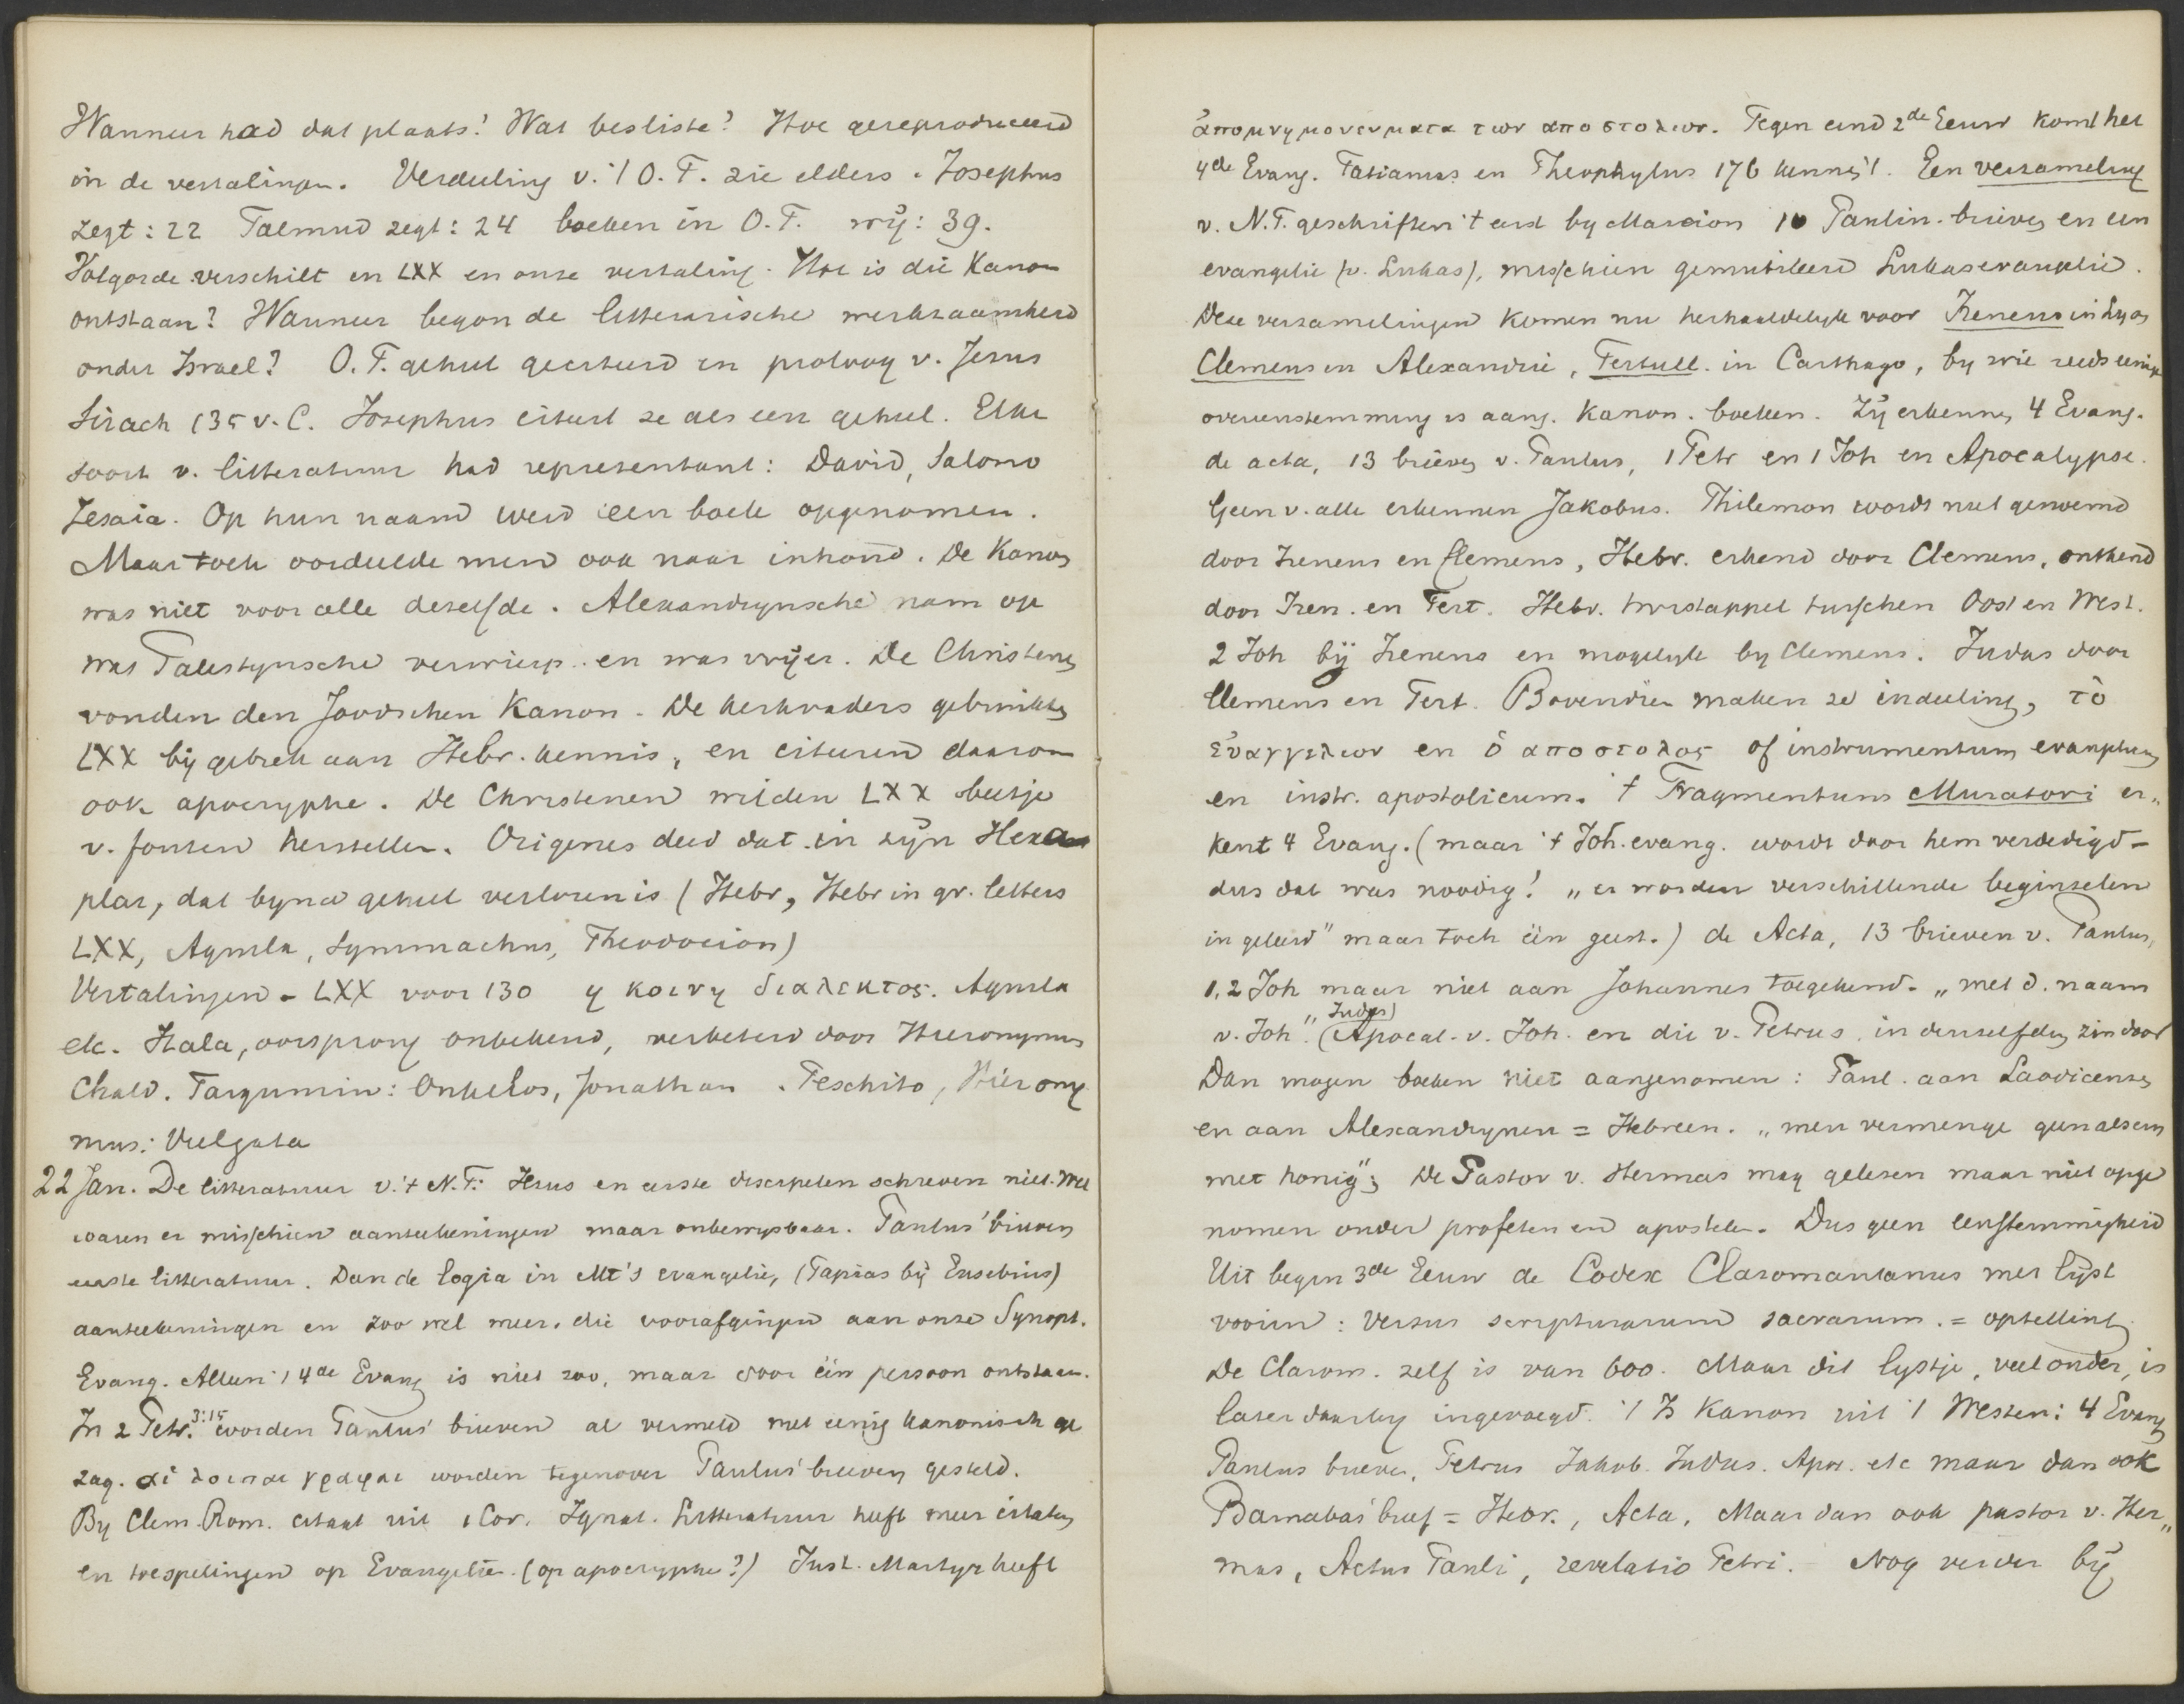 Wanneer had dat plaats? Wat besliste? Hoe gereproduceerd
in de vertalingen. Verdeeling v. 't O.T. zie elders. Josephus
zegt: 22 Talmud zegt: 24 boeken in O.T. wij: 39.
Volgorde verschilt en LXX en onze vertaling. Hoe is die Kanon
ontstaan? Wanneer begon de litterarische werkzaamheid
onder Israel? O.T. geheel geciteerd in proloog v. Jesus
Sirach 135 v. C. Josephus citeert ze als een geheel. Elke
soort v. litteratuur had representant: David, Salomo
Jesaia. Op hun naam werd een boek opgenomen.
Maar toch oordeelde men ook naar inhoud. De Kanon
was niet voor alle dezelfde. Alexandrynsche nam op
wat Palestynsche verwierp en was vrijer. De Christenen
vonden den Joodschen Kanon. De kerkvaders gebruikten
LXX bij gebrek aan Hebr. kennis, en citeren daarom
ook apocryphe. De Christenen wilden LXX beetje
v. fouten herstellen. Origenes deed dat in zijn Hexa
plar, dat byna geheel verloren is (Hebr, Hebr in gr. letters
LXX, Aquila, Symmachus, Theodocion)
Vertalingen - LXX voor 130 η κοινη διαλεκτος. Aquila
etc. Itala, oorsprong onbekend, verbeterd door Hieronymus
Chald. Targumin: Onkelos, Jonathan. Peschito, Hierony
mus: Vulgata
22 Jan. De litteratuur v. 't N.T.: Jezus en eerste discipelen schreven niet. Wel
waren er misschien aanteekeningen maar onbewysbaar. Paulus' brieven
eerste litteratuur. Dan de logia in Mt's evangelie, (Papias bij Eusebius)
aanteekeningen en zoo wel meer, die voorafgingen aan onze Synopt.
Evang. Alleen 't 4de Evang is niet zoo, maar door één persoon ontstaan.
In 2 Petr. 3:15 worden Paulus' brieven al vermeld met eenig kanonisch ge
zag. αἱ λοιπαι γραφαι worden tegenover Paulus' brieven gesteld.
By Clem. Rom. citaat uit 1 Cor. Ignat. Litteratuur heeft meer citaten
en toespelingen op Evangelie. (op apocryphe?) Just. Martyr heeft
ἀπομνημονευματα των αποστολων. Tegen eind 2de Eeuw komt het
4de Evang. Tatianus en Theophylus 176 kennen 't. Een verzameling
v. N.T. geschriften 't eerst by Marcion 10 Paulin. brieven en een
evangelie (v. Lukas), misschien gemutileerd Lukasevangelie.
Deze verzamelingen komen nu herhaaldelyk voor Ireneus in Lyon
Clemens in Alexandrië, Tertull. in Carthago, by wie reeds eenige
overeenstemming is aang. Kanon. boeken. Zij erkennen 4 Evang.
de acta, 13 brieven v. Paulus, 1 Petr en 1 Joh en Apocalypse.
Geen v. alle erkennen Jakobus. Philemon wordt niet genoemd
door Ireneus en Clemens, Hebr. erkend door Clemens, ontkend
door Iren. en Tert. Hebr. twistappel tusschen Oost en West.
2 Joh bij Ireneus en mogelyk by Clemens. Judas door
Clemens en Tert. Bovendien maken ze indeeling, τὸ
εὐαγγελιον en ὁ αποστολος of instrumentum evangelicum
en instr. apostolicum. 't Fragmentum Muratori er„
kent 4 Evang. (maar 't Joh. evang. wordt door hem verdedigd -
dus dat was noodig! „er worden verschillende beginselen
in geleerd" maar toch één geest.) de Acta, 13 brieven v. Paulus,
1, 2 Joh maar niet aan Johannes toegekend. „met d. naam
v. Joh". (Judas) Apocal. v. Joh. en die v. Petrus. in denzelfden zin door
Dan mogen boeken niet aangenomen: Paul. aan Laodicensen
en aan Alexandrynen = Hebreen. „men vermenge geen alsem
met honig"; De Pastor v. Hermas mag gelezen maar niet opge
nomen onder profeten en apostelen. Dus geen eenstemmigheid
Uit begin 3de Eeuw de Codex Claromantanus met lijst
voorin: versus scripturarum sacrarum. = optelling
De Clarom. zelf is van 600. Maar dit lystje, veel ouder, is
later daarby ingevoegd. 't Is Kanon uit 't Westen: 4 Evang
Paulus brieven, Petrus Jakob. Judas. Apoc. etc maar dan ook
Barnabas' brief = Hebr., Acta, Maar dan ook pastor v. Her„
mas, Actus Pauli, revelatio Petri. Nog verder bij